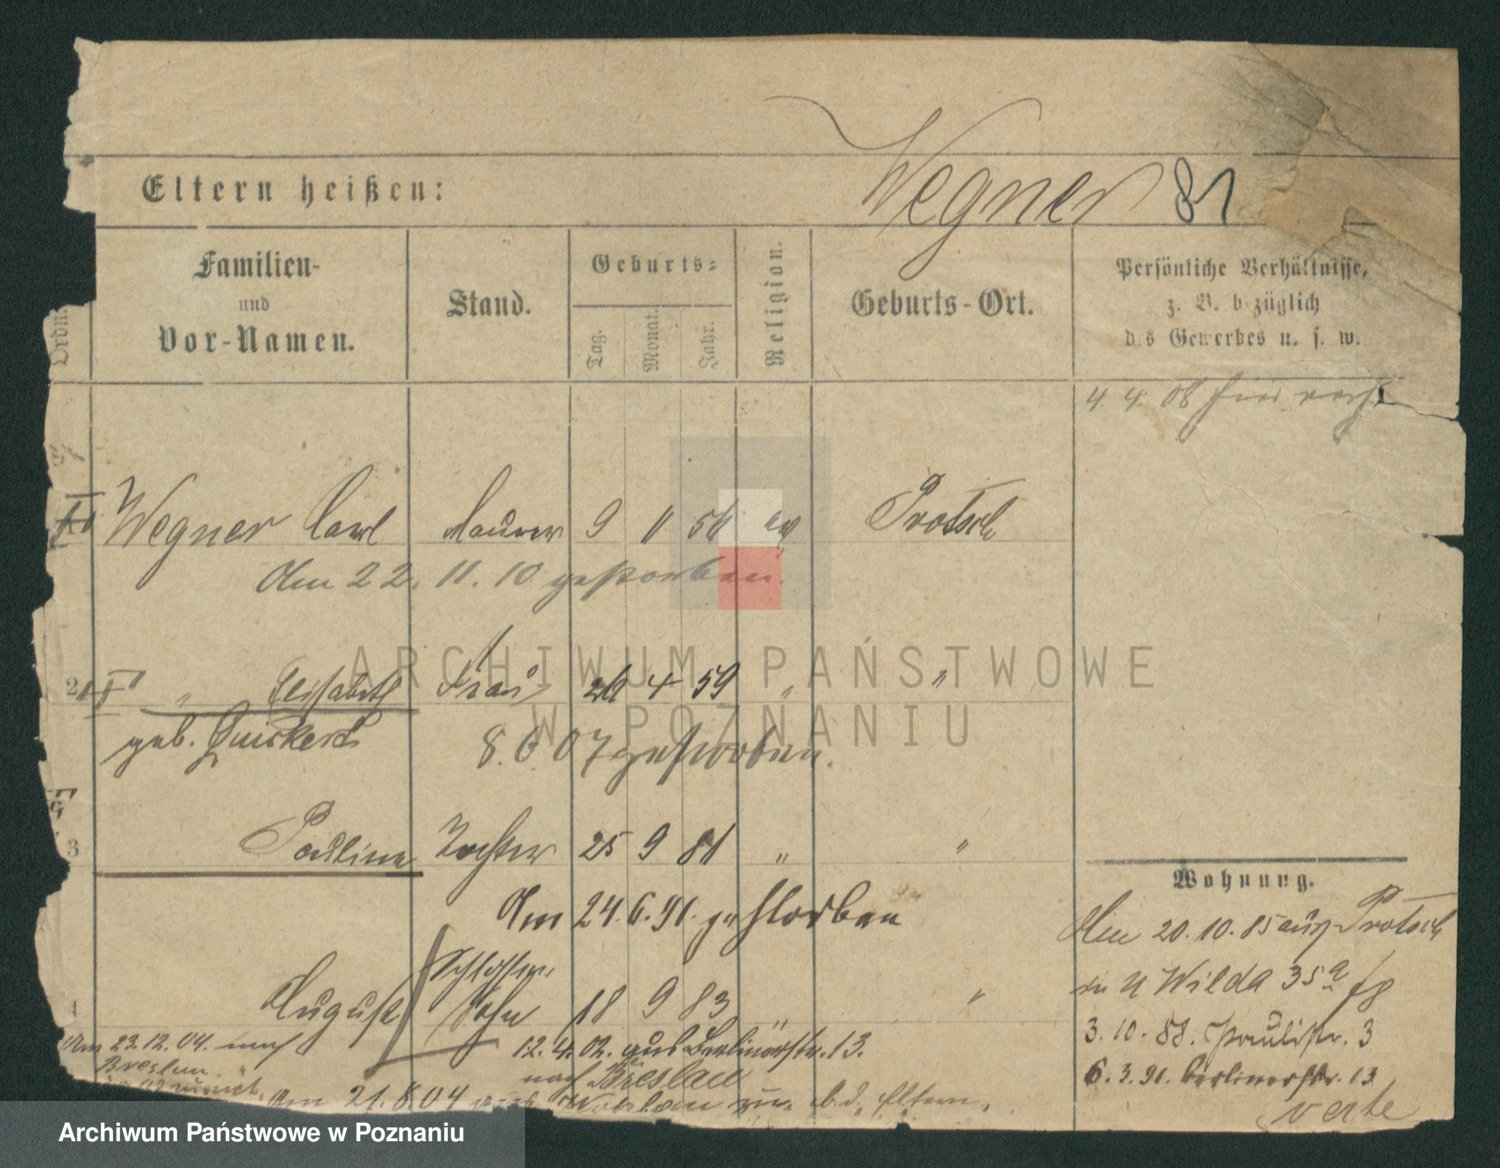 Eltern heißen:
Wegner 81
Ordn.
Familien-
und
Vor-Namen.
Stand.
Geburts-
Tag.
Monat.
Jahr.
Religion.
Geburts-Ort.
Persönliche Verhältnisse,
z. B. bezüglich
des Gewerbes u. s. w.
4. 4. 08
Wegner Carl Maurer 9 11 56 ev Protsch
Am 22. 11. 10 gestorben.
2 " Elisabeth Frau 26 4 59 " "
geb. Quickert 8. 6. 07 gestorben.
3 Pauline Tochter 25 9 81 " "
Am 24. 6. 91. gestorben
Schlosser
4 August Sohn 18 9 83 " "
Am 23. 12. 04. nach
Breslau.
12. 4. 02. aus Berlinerstr. 13.
nach Breslau
Am 21. 8. 04 Breslau zu b. d. Eltern.
Wohnung.
Am 20. 10. 85 aus Protsch
in U Wilda 35a
3. 10. 88. Paulistr. 3
6. 3. 91. Berlinerstr. 13
verte
ARCHIWUM PAŃSTWOWE
W POZNANIU
Archiwum Państwowe w Poznaniu